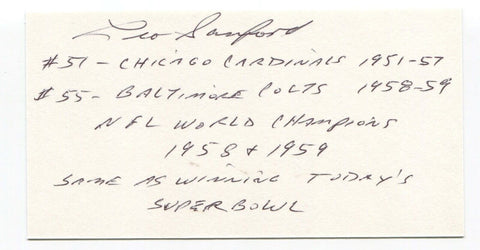 Leo Sanford
#57 - CHICAGO CARDINALS 1951-57
#55 - BALTIMORE COLTS 1958-59
NFL WORLD CHAMPIONS
1958 + 1959
SAME AS WINNING TODAY'S
SUPERBOWL